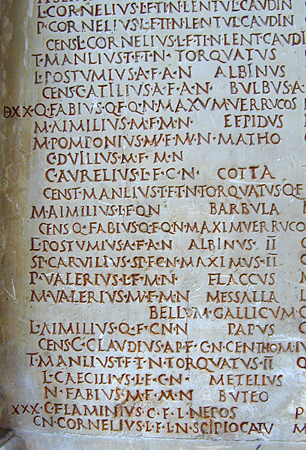 P·CORNELIUS·L·F·TI·N·LENTUL·CAUDIN
L·CORNELIUS·L·F·TI·N·LENTUL·CAUDIN
CENS·L·CORNELIUS·L·F·TI·N·LENT·CAUDI
T·MANLIUS·T·F·T·N·TORQUATUS
L·POSTUMIUS·A·F·A·N· ALBINUS
CENS·C·ATILIUS·A·F·A·N· BULBUS·A
ƉXX·Q·FABIUS·Q·F·Q·N·MAXUM·VERRUCOS
M·AIMILIUS·M·F·M·N· LEPIDUS
M·POMPONIUS·M·F·M·N· MATHO
C·DVILIUS·M·F·M·N
C·AURELIUS·L·F·C·N· COTTA
CENS·T·MANLIUS·T·F·T·N·TORQUATUS·Q·F
M·AIMILIUS·L·F·Q·N BARBULA
CENS·Q·FABIUS·Q·F·Q·N·MAXIM·VERRUCO
L·POSTUMIUS·A·F·A·N ALBINUS·II
SP·CARVILIUS·SP·F·C·N·MAXIMUS·II
P·VALERIUS·L·F·M·N· FLACCUS
M·VALERIUS·M·F·M·N MESSALLA
BELLUM·GALLICUM·C
L·AIMILIUS·Q·F·CN·N PAPUS
CENS·C·CLAUDIUS·AP·F·C·N·CENTHO·M·IU
T·MANLIUS·T·F·T·N·TORQUATUS·II
L·CAECILIUS·L·F·C·N· METELLUS
N·FABIUS·M·F·M·N BUTEO
XXX·C·FLAMINIUS·C·F·L·NEPOS
CN·CORNELIUS·L·F·L·N·SCIPIO·CALV